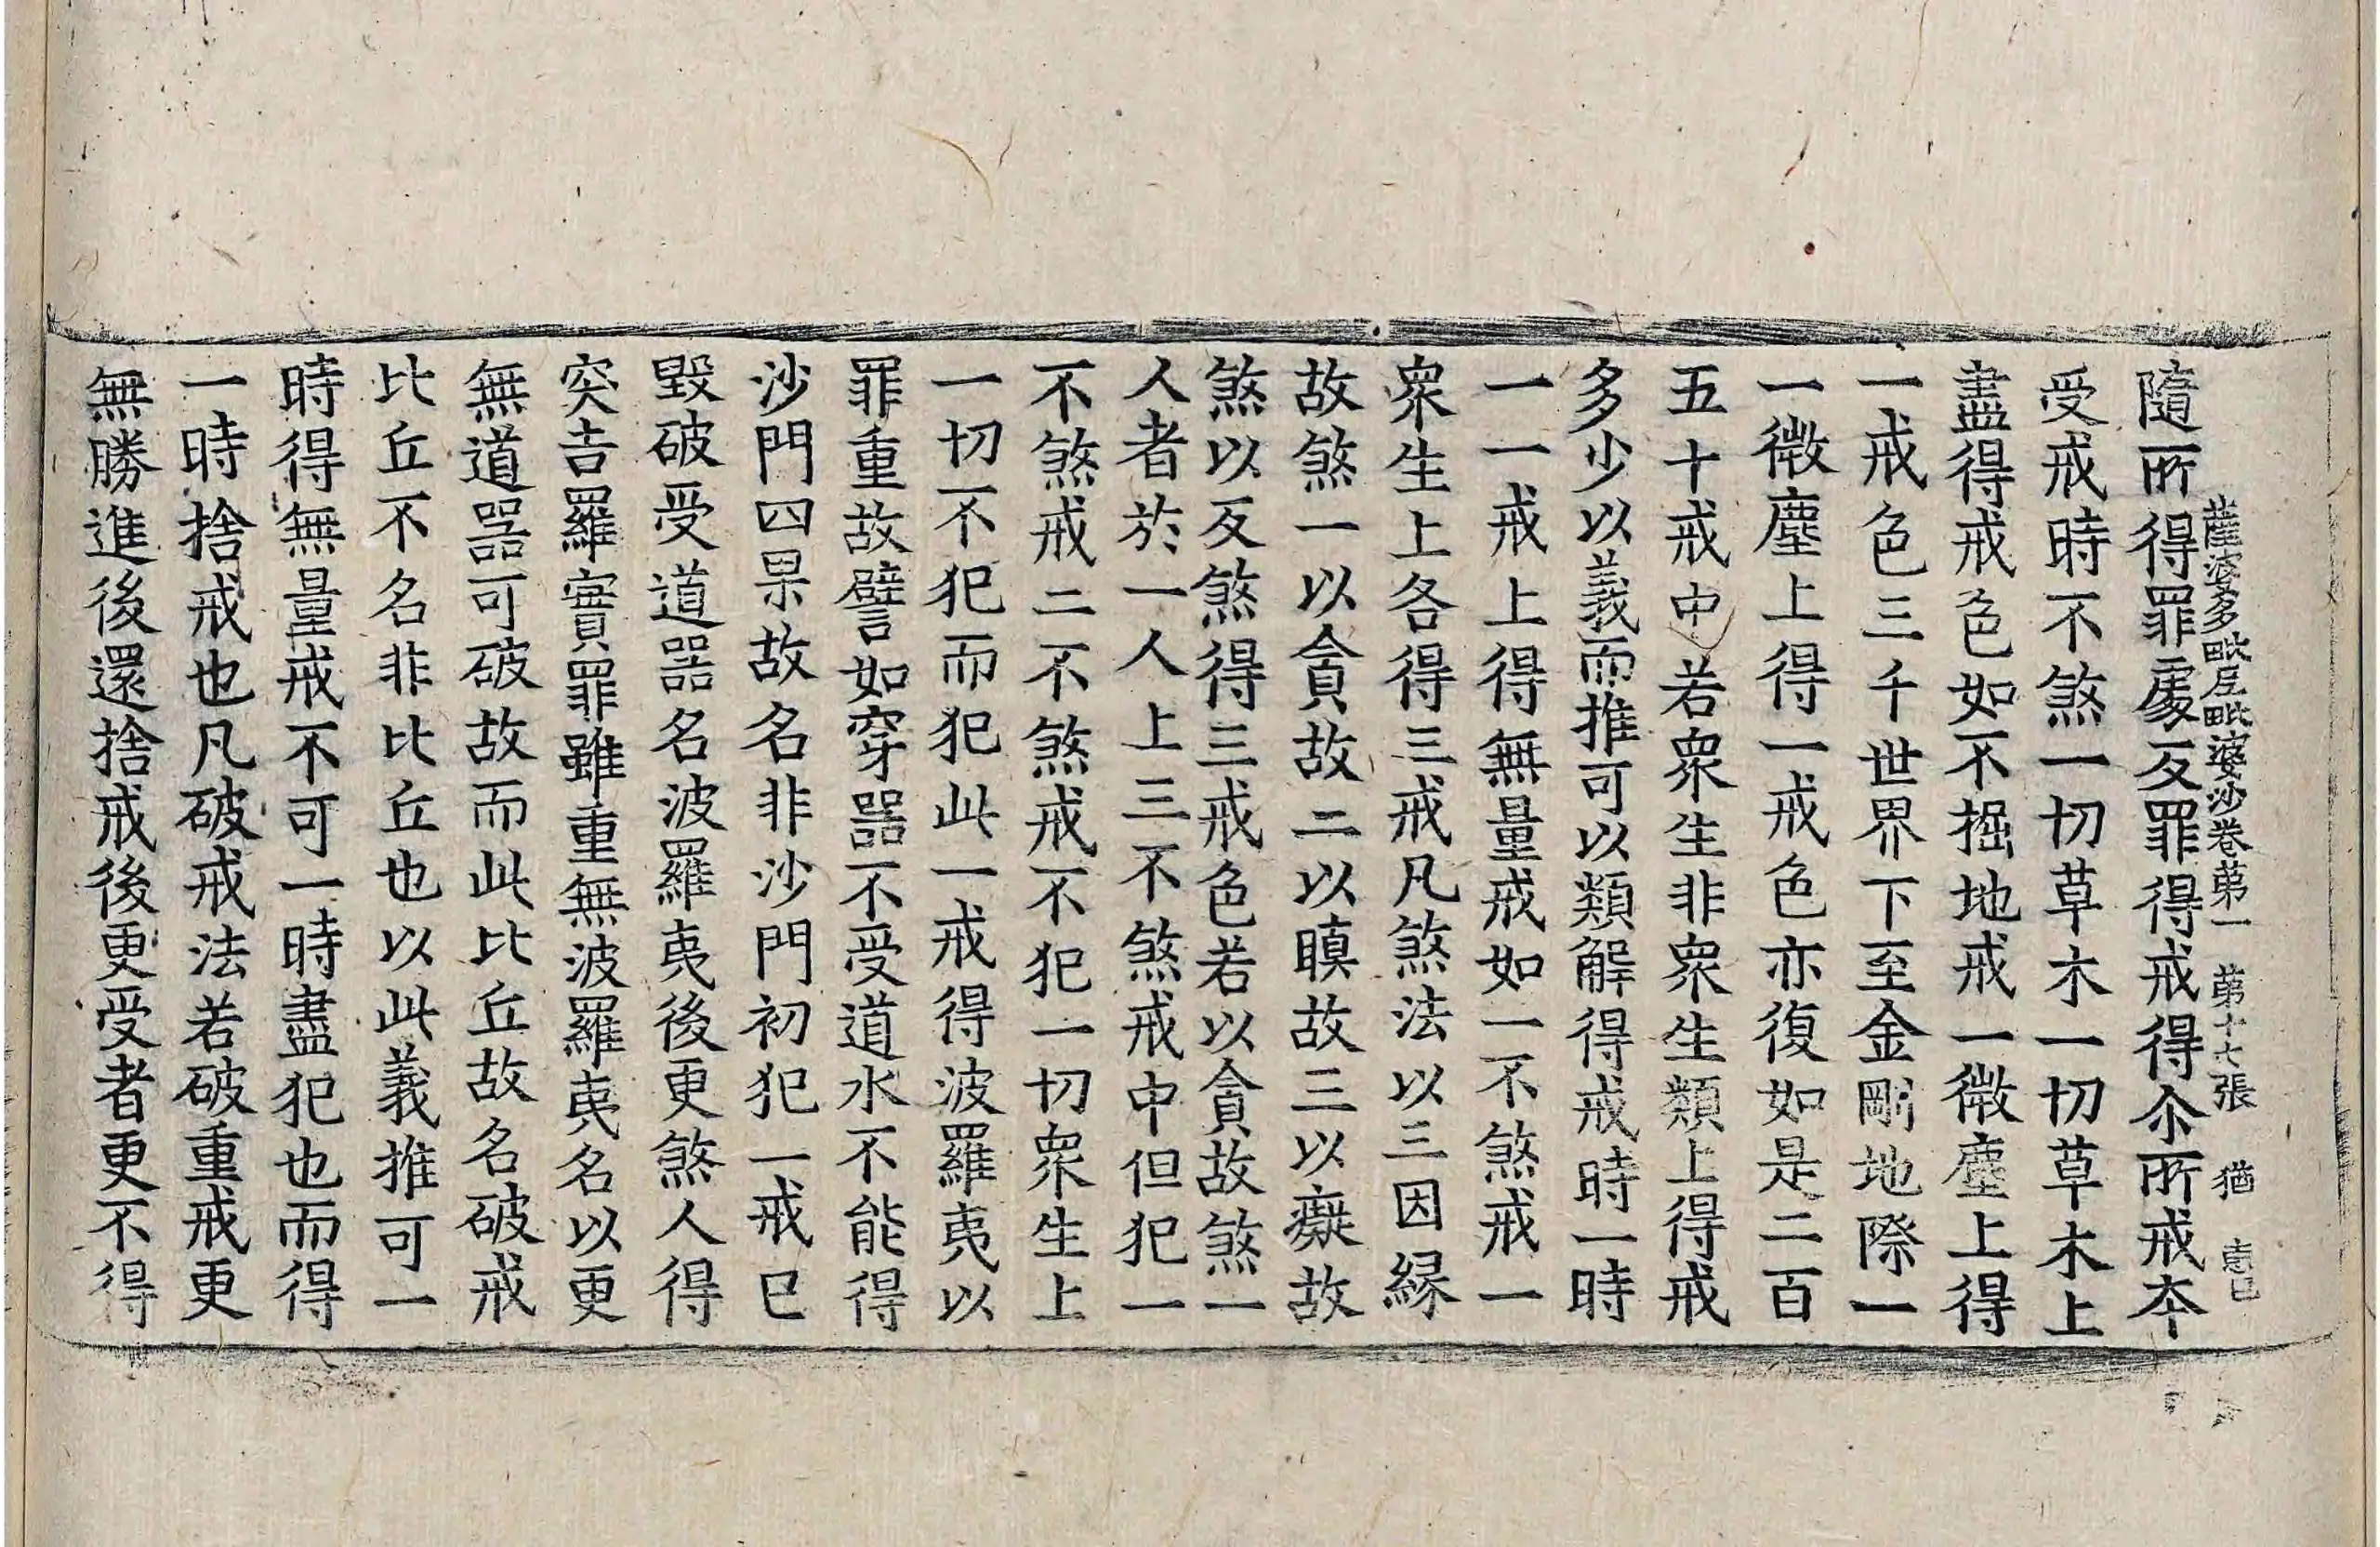 薩婆多毗尼毗婆沙卷苐一　苐十七張　猶
隨所得罪處反罪得戒得尒所戒夲
受戒時不煞一切草木一切草木上
盡得戒色如不掘地戒一微塵上得
一戒色三千世界下至金剛地際一
一微塵上得一戒色亦復如是二百
五十戒中若衆生非衆生類上得戒
多少以義而推可以類解得戒時一時
一一戒上得無量戒如一不煞戒一
衆生上各得三戒凡煞法以三因縁
故煞一以貪故二以瞋故三以癡故
煞以反煞得三戒色若以貪故煞一
人者於一人上三不煞戒中但犯一
不煞戒二不煞戒不犯一切衆生上
一切不犯而犯此一戒得波羅夷以
罪重故譬如穿器不受道水不能得
沙門四果故名非沙門初犯一戒已
毀破受道器名波羅夷後更煞人得
突吉羅實罪雖重無波羅夷名以更
無道器可破故而此比丘故名破戒
比丘不名非比丘也以此義推可一
時得無量戒不可一時盡犯也而得
一時捨戒也凡破戒法若破重戒更
無勝進後還捨戒後更受者更不得